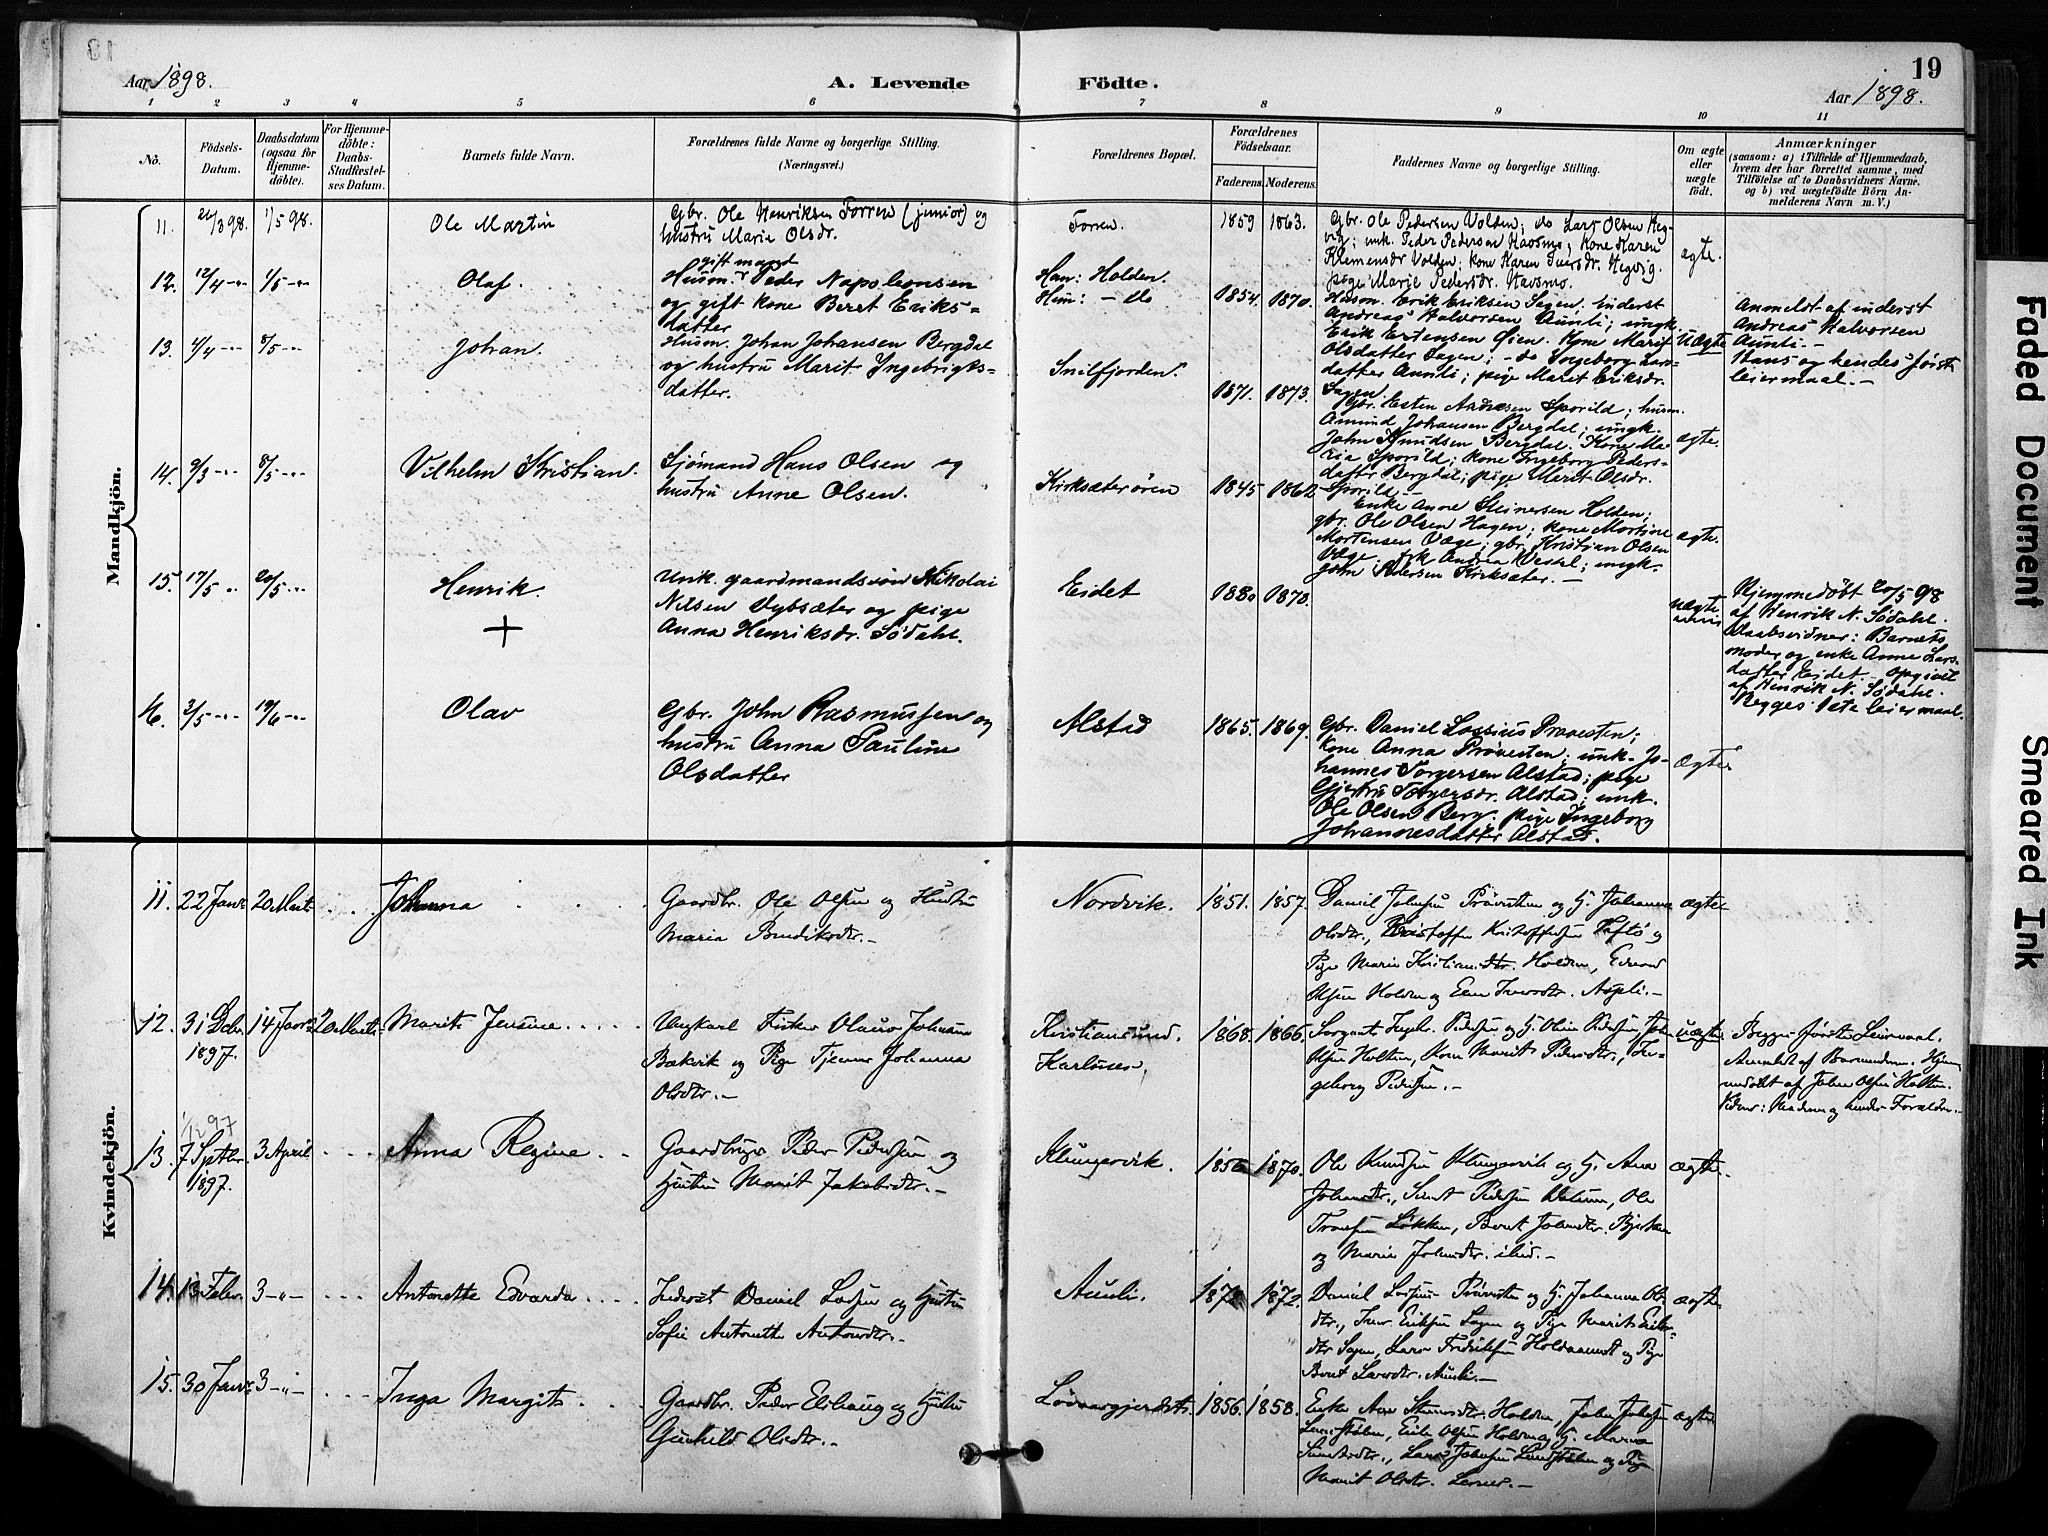 Aar 1898.
A. Levende Födte.
19
Aar 1898.
1 2 3 4 5 6 7 8 9 10 11
No.
Födsels-Datum.
Daabsdatum (ogsaa for Hjemme-döbte).
For Hjemme-döbte: Daabs-Stadfæstel-ses Datum.
Barnets fulde Navn.
Forældrenes fulde Navne og borgerlige Stilling.
(Næringsvei.)
Forældrenes Bopæl.
Forældrenes Födselsaar.
Faderens. Moderens.
Faddernes Navne og borgerlige Stilling.
Om ægte eller uægte födt.
Anmærkninger
(saasom: a) i Tilfælde af Hjemmedaab, hvem der har forrettet samme, med Tilföielse af to Daabsvidners Navne, og b) ved uægtefödte Börn An-melderens Navn m. V.)
Mandkjön.
11. 1/5 98. Ole Martin
Gbr. Ole Henriksen Forren (junior) og
hustru Marie Olsdr.
Forren. 1859 1863.
Gbr. Ole Pedersen Volden; do Lars Olsen Heg-
vig; unk. Peder Pedersen Havsmo; kone Karen
Klemensdr Volden; kone Karen Iversdr. Hegvig.
pige Marie Pedersdr. Havsmo.
ægte.
12. 12/4 -"- 1/5 -"- Olaf.
gift mand
Husm. Peder Napoleonsen
og gift kone Beret Eriks=
datter
Han: Holden.
Hun: - do
1854. 1870.
Husm. Erik Eriksen Sagen, inderst
Andreas Halvorsen Aunli; ungk.
Erik Estensen Øien. Kone Marit
Olsdatter Sagen; - do Ingeborg Lars-
datter Aunli; pige Marit Eriksdr.
Sagen.
uægte
Anmeldt af inderst
Andreas Halvorsen
Aunli. -
Hans og hendes første
leiermaal. -
13. 4/4 -"- 8/5 -"- Johan.
Husm. Johan Johansen Bergdal
og hustru Marit Ingebrigts-
datter.
Snilfjorden. 1871. 1873.
Gbr. Esten Andresen Sporild; husm.
Amund Johansen Bergdal; ungk.
John Knudsen Bergdal. Kone Ma-
ria Sporild; kone Ingeborg Peders-
datter Bergdal; pige Marit Olsdr.
Sporild -
ægte.
14. 9/3 -"- 8/5 -"- Vilhelm Kristian.
Sjømand Hans Olsen og
hustru Anne Olsen.
Kirksæterøren 1845 1862
Enke Anne Steinersen Holden;
gbr. Ole Olsen Hagen; kone Martine
Mortensen Væge; gbr. Kristian Olsen
Væge; frk Andrea Westel; ungk.
John Pedersen Kirksæter. -
ægte.
15. 17/5 -"- 20/5 -"- Henrik.
Unk. gaardmandssøn Nikolai
Nilsen Vybsæter og pige
Anna Henriksdr. Södahl.
Eidet 1880 1870.
uægte
Hjemmedøbt 20/5 98
af Henrik N. Södahl.
Daabsvidner: Barnets
moder og enke Anne Lars-
datter Eidet. - Opgivet
af Henrik N. Södahl.
Begges 1ste leiermaal.
16. 3/5 -"- 19/6 -"- Olav
Gbr. John Rasmussen og
hustru Anna Pauline
Olsdatter
Alstad 1865. 1869.
Gbr. Daniel Lossius Prøvesten;
kone Anna Prøvesten; unk. Jo-
hannes Torgersen Alstad; pige
Gjertru Torgersdr. Alstad; unk.
Ole Olsen Berg. pige Ingeborg
Johannesdatter Alstad.
ægte
Kvindekjön.
11. 22 Janr 20 Marts Johanna
Gaardbr. Ole Olsen og Hustru
Maria Bendiksdtr. -
Nordvik. 1851. 1857.
Daniel Johnsen Prövesten og H. Johanna
Olsdtr., Kristoffer Kristoffersen Haftö og
Pige Marie Kristiansdtr. Holden, Edvard
Olsen Holden og Elen Iversdtr. Aspli. -
ægte
12. 31 Dcbr. 1897. 14 Janr 20 Marts Marit Jensine
Ungkarl Fisker Olaus Johnsen
Bakvik og Pige Tjener Johanna
Olsdtr. -
Kristiansund.
Karlsnes.
1868. 1866.
Sergeant Ingbr. Pedersen og H. Oline Pedersen, John
Olsen Holten, Kone Marit Pedersdtr., In-
geborg Pedersen. -
uægte
Begges förste Leiermaal.
Anmeldt af Barnefaderen. Hjem-
medöbt af John Olsen Holten.
Vidner: Moderen og hendes Forældre. -
1/12 97
13. 7 Sptbr. 1897. 3 April Anna Regine
Gaardbruger Peder Pedersen og
Hustru Marit Jakobsdtr. -
Klungervik. 1856 1870.
Ole Knudsen Klungervik og H. Ana
Johansdtr., Sivert Pedersen Dalum, Ole
Tronsen Løkken, Beret Johnsdtr. Bjerkan
og Marie Johnsdtr. ibid. -
ægte
14. 13 Febr. 3 -"- Antonette Edvarda
Inderst Daniel Larsen og Hustru
Sofie Antonette Antonsdtr. -
Aunli. 1872.
Daniel Lossius Prövesten og H. Johanna Ols-
dtr., Iver Eriksen Sagen og Pige Marit Eriks-
dtr Sagen, Lars Fredriksen Holdsaunet og Pige
Beret Larsdtr. Aunli. -
ægte
15. 30 Janr 3 -"- Inga Margit
Gaardbr. Peder Elshaug og Hustru
Gunhild Olsdtr. -
1856. 1858.
Enke Ane Steinersdtr. Holden, John Johnsen
Erik Olsen Holden og H. Marna
Lars Johnsen og Pige
Marit Olsdtr. -
ægte
Faded Document
Smeared Ink